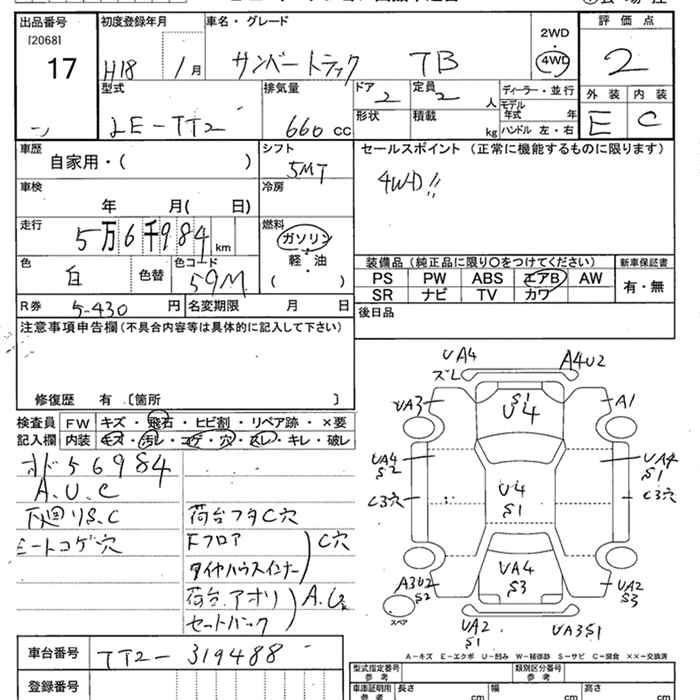 出品番号 初度登録年月 車名・グレード 評価点
[2068]
17
H18 1月 サンバートラック TB 2WD 4WD 2
型式 排気量 ドア 定員 ディーラー・並行 外装 内装
LE-TT2 660 cc 2 2人 モデル年式 年 E C
形状 積載 kg ハンドル 左・右
車歴 自家用・( ) シフト 5MT セールスポイント (正常に機能するものに限ります)
車検 年 月( 日) 冷房 4WD!!
走行 5万6千984km 燃料 ガソリン
軽・油
( )
色 白 色替 色コード 59M 装備品(純正品に限り○をつけてください) 新車保証書
PS PW ABS エアB AW 有・無
SR ナビ TV カワ
R券 5-430円 名変期限 月 日 後日品
注意事項申告欄(不具合内容等は具体的に記入して下さい)
修復歴 有 〔箇所 〕
検査員 FW キズ・飛石・ヒビ割・リペア跡・×要
記入欄 内装 キズ・汚レ・コゲ・穴・スレ・キレ・破レ
オド56984
A.U.C
下廻りS.C 荷台フタC穴
シートコゲ穴 Fフロア
タイヤハウスインナー C穴
荷台アオリ
セットバック
UA4 A4U2
ズレ
UA3 S1 A1
U4
UA4 UA4
S2 S1
C3穴 U4 C3穴
S1
UA4
S3
A3U2 UA2
S2 S3
スペア
UA2 UA3S1
S1
A-キズ E-エクボ U-凹み W-補修跡 S-サビ C-腐食 ××-交換済
車台番号 TT2-319488 型式指定番号 類別区分番号
参考 参考
登録番号 車庫証明用 長さ 幅 高さ
参考 cm cm cm